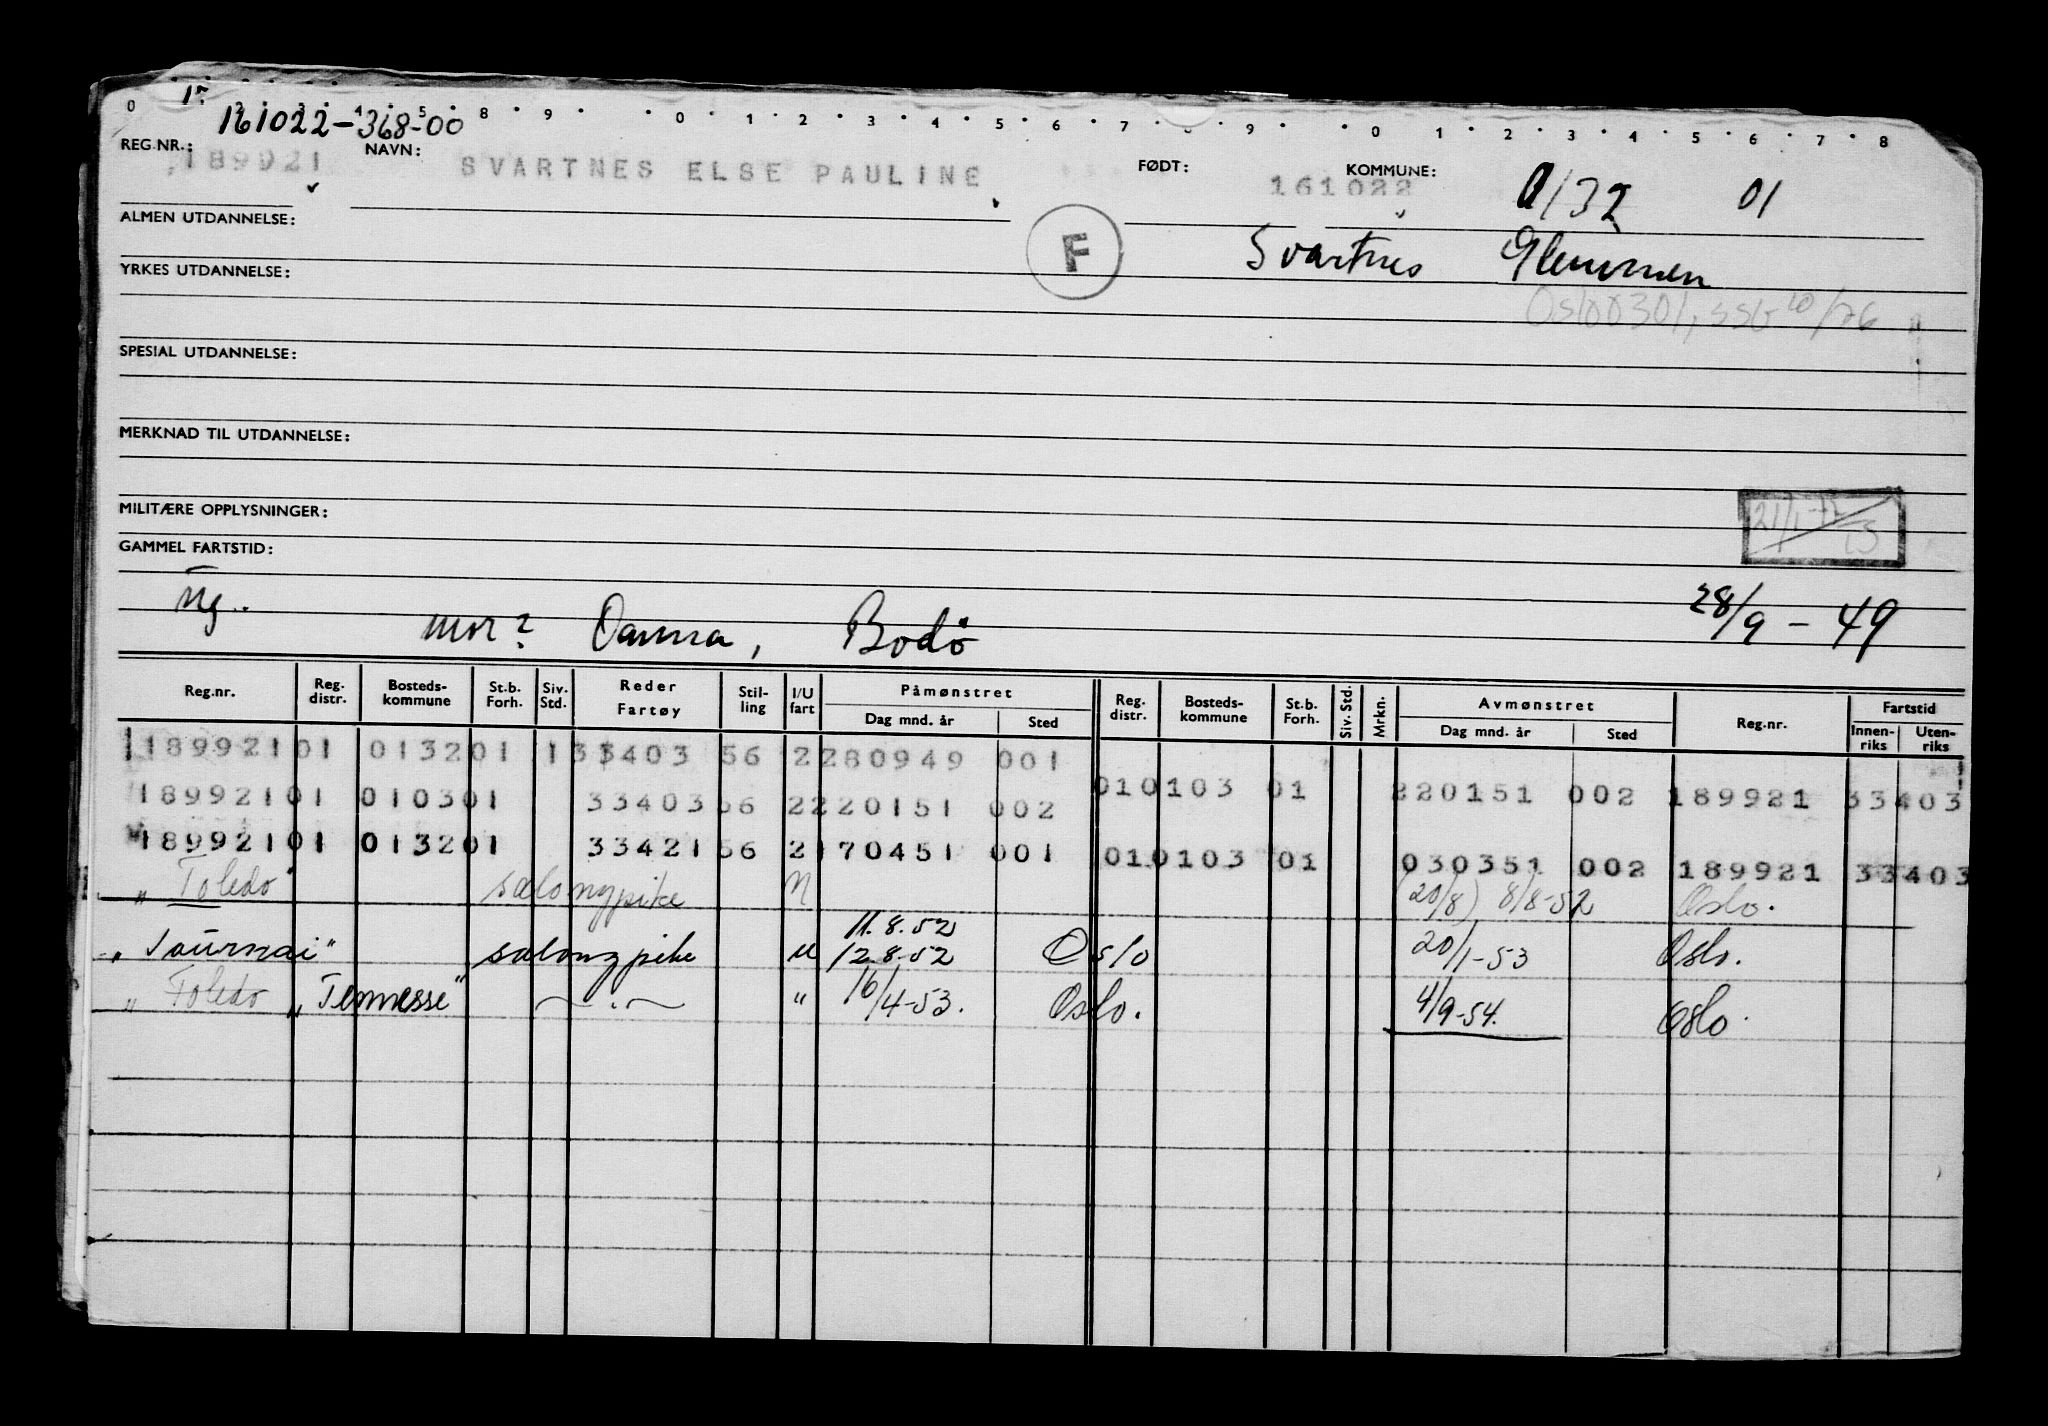 161022-368-00
REG.NR.: 189921 NAVN: SVARTNES ELSE PAULINE FØDT: 161022 KOMMUNE: 0132 01
ALMEN UTDANNELSE:
F Svartnes Glemmen
YRKES UTDANNELSE:
Oslo 0301, SSB 10/76
SPESIAL UTDANNELSE:
MERKNAD TIL UTDANNELSE:
MILITÆRE OPPLYSNINGER:
GAMMEL FARTSTID:
Ug..
mor? Danna, Bodø 28/9 - 49
Reg.nr. Reg. distr. Bosteds-kommune St.b. Forh. Siv. Std. Reder Fartøy Stil-ling I/U fart Påmønstret Dag mnd. år Sted Reg. distr. Bosteds-kommune St.b. Forh. Siv. Std. Mrkn. Avmønstret Dag mnd. år Sted Reg.nr. Fartstid Innen-riks Uten-riks
189921 01 0132 01 1 33403 56 2 280949 001
010103 01 220151 002 189921 33403
189921 01 0103 01 33403 56 2 220151 002
189921 01 0132 01 33421 56 2 170451 001
010103 01 030351 002 189921 33403
" Toledo salongpike (20/8) 8/8-52 Oslo.
11.8.52
"Tournai" salongpike u 12.8.52 Oslo 20/1-53 Oslo.
" Toledo "Tennesse" " 16/4-53. Oslo. 4/9-54. Oslo.